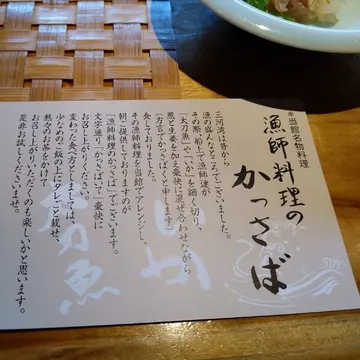 ※当館名物料理
漁師料理の
かっさば
三河湾は昔から
漁の盛んなところでございました。
その際、船上で漁師達が
「太刀魚」や「いか」を細く切り、
葱と生姜を加え豪快に混ぜ合わせながら
(方言でかっさばくと申します)
食しておりました。
その漁師料理を当館でアレンジし、
朝ご提供しておりますのが
「漁師料理のかっさば」でございます。
文字通り「かっさばいて」豪快に
お召し上がりください。
変わった食べ方としましては、
少なめのご飯の上にタレごと載せ、
熱々のお茶をかけて
お召し上がりいただくのも楽しいかと思います。
是非お試しくださいませ。